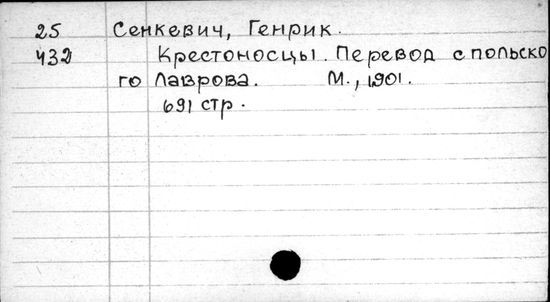 25 Сенкевич, Генрик.
432 Крестоносцы. Перевод с польско
го Лаврова. М., 1901.
691 стр.